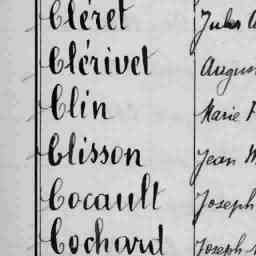 Cléret Jules
Clérivet
Clin Marie
Clisson Jean M
Cocault Joseph
Cochard Joseph